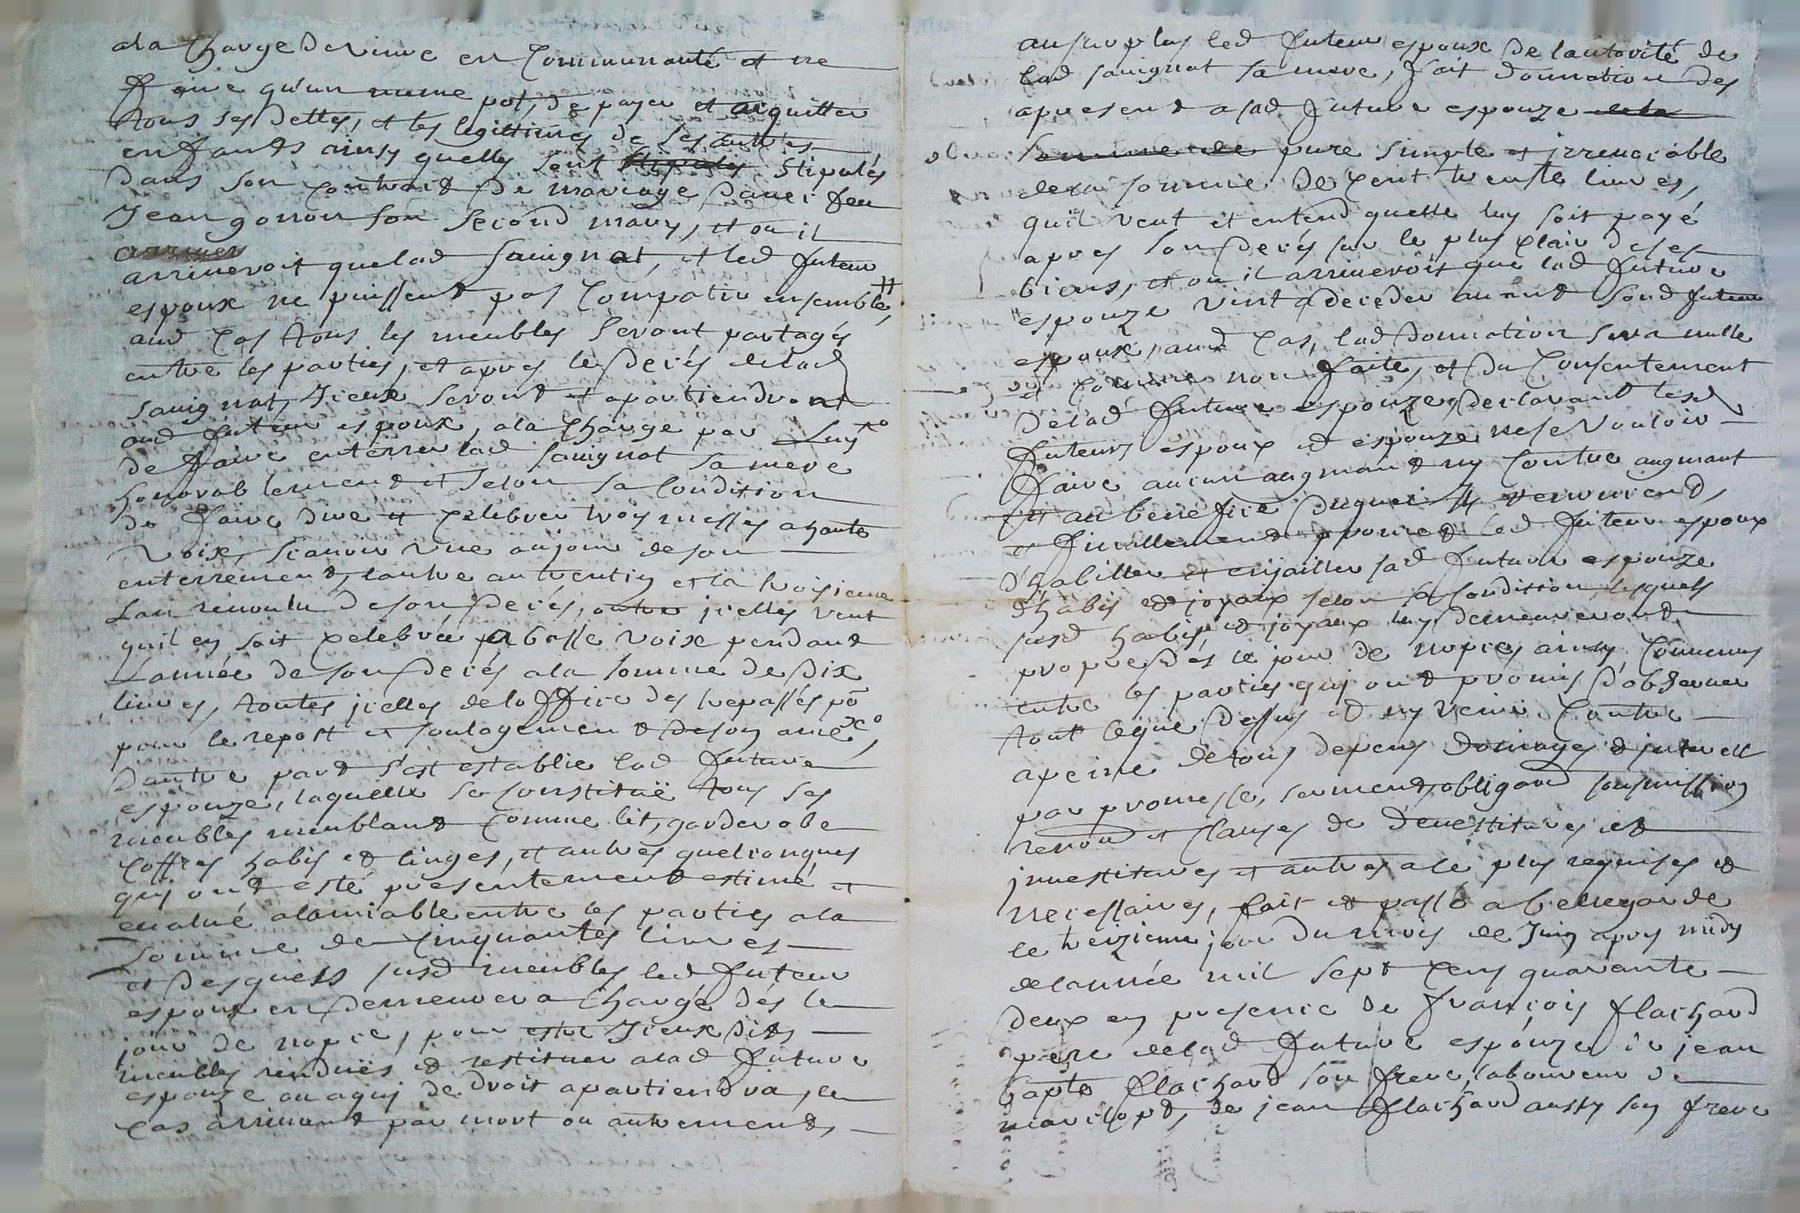 ala Charge de vivre en Communauté et ne
faire qu'un mesme pot, de payer et acquitter
tous ses dettes, et les legittimes de ses autres
enfants ainsy quelles sont stipulés
dans son Contract de mariage d'avec feu
Jean gonon son second mary, et ou il
arriveroit que lad sauignat, et led futeur
espoux ne puissent pas Compatir ensemble,
aud Cas tous les meubles seront partagés
entre les parties, et apres le decés de lad
sauignat, Iceux seront et apartiendront
aud futeur espoux, ala Charge par luy
de faire enterrer lad sauignat sa mere
honorablement et selon sa Condition
de faire dire et Celebrer trois messes a haute
voix, scauoir une aujour de son
enterrement, lautre au trentin et la troisieme
Lan revoulu de son decés, outre icelles veut
quil en soit Celebrée a basse voix pendant
Lannée de son decés ala somme de dix
livres, toutes icelles de loffice des trepassés po
pour le repost et soulagement de son ame,
Dautre part s'est establie lad future
espouze, laquelle se Constituë tous ses
meubles meublant Comme lit, garderobe
Coffres habis et linges, et autres quelconques
quy ont esté presentement estimé et
evalué alamiable entre les parties ala
somme de Cinquantes livres
et desquels susd meubles led futeur
espoux en demeurera Chargé dés le
jour de nopce, pour estre Iceux dits
meubles rendües et restituer alad future
espouze ou aquy de droit apartiendra, le
Cas arrivant par mort ou autrement,
au surplus led futeur espoux de lautorité de
lad sauignat sa mere, fait donnation des
apresent a sad future espouze
pure simple et irrevocable
de la somme de Cent trente livres,
quil veut et entend quelle luy soit payé
apres son decés sur le plus Clair de ses
biens, et ou il arriveroit que lad future
espouze vint a deceder avant sond futeur
espoux, aud Cas, lad donnation sera nulle
et Comme non faite, et du Consentement
delad future espouze, declarant lesd
futeurs espoux et espouze ne se vouloir
faire aucun augmant ny Contre augmant
au benefice duquel ils renoncent,
et finallement promet led futeur espoux
d'habiller et enjoailler sad future espouze
d'habis et joyaux selon sa Condition, lesquels
susd habis et joyaux luy demeureront
propre dés le jour de nopces ainsy Convenus
entre les parties quy ont promis d'observer
tout leque dessus et ny venir Contre
apeine de tous depens domages et interest
par promesse, serment, obligaon soubmission
renon et Clauses de devestitures et
investitures et autres ale plus requises et
necessaires, fait et passé a bellegarde
le treizieme jour du mois de Juin apres midy
delannée mil sept Cens quarante
deux en presence de françois flachard
pere delad future espouze, de jean
bapte flachard son frere, laboureur de
de jean flachard aussy son frere